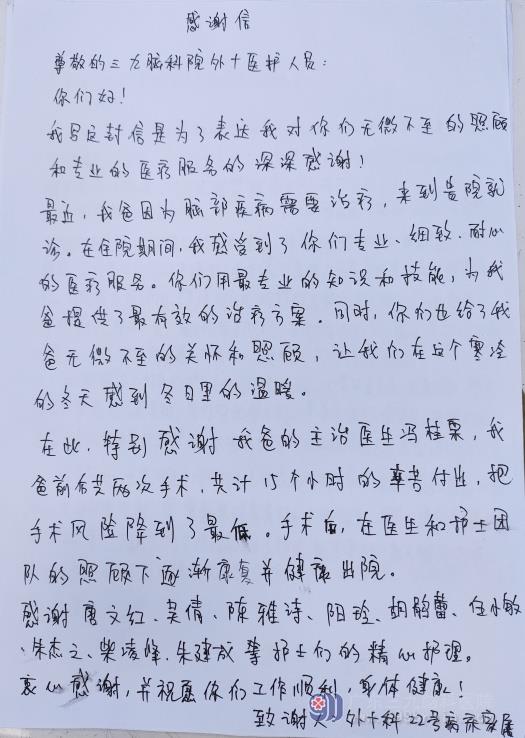 感谢信
尊敬的三九脑科院外十医护人员：
你们好！
我写这封信是为了表达我对你们无微不至的照顾
和专业的医疗服务的深深感谢！
最近，我爸因为脑部疾病需要治疗，来到贵院就
诊。在住院期间，我感受到了你们专业、细致、耐心
的医疗服务。你们用最专业的知识和技能，为我
爸提供了最有效的治疗方案．同时，你们也给了我
爸无微不至的关怀和照顾，让我们在这个寒冷
的冬天感到冬日里的温暖。
在此，特别感谢我爸的主治医生冯桂栗，我
爸前后共两次手术，共计15个小时的辛苦付出，把
手术风险降到了最低。手术自，在医生和护士团
队的照顾下逐渐康复并健康出院。
感谢唐文红、吴倩、陈雅诗、阳玲、胡鹃蕾、任小敏
、朱杰之、柴凌峰、朱建成等护士们的精心护理。
衷心感谢，并祝愿你们工作顺利，身体健康！
致谢人 外十科22号病床家属